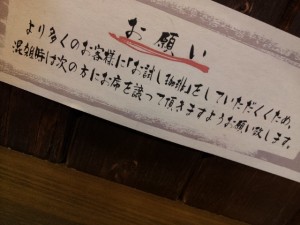 お願い
より多くのお客様に『お試し珈琲』をしていただくため、
混雑時は次の方にお席を譲って頂きますようお願い致します。